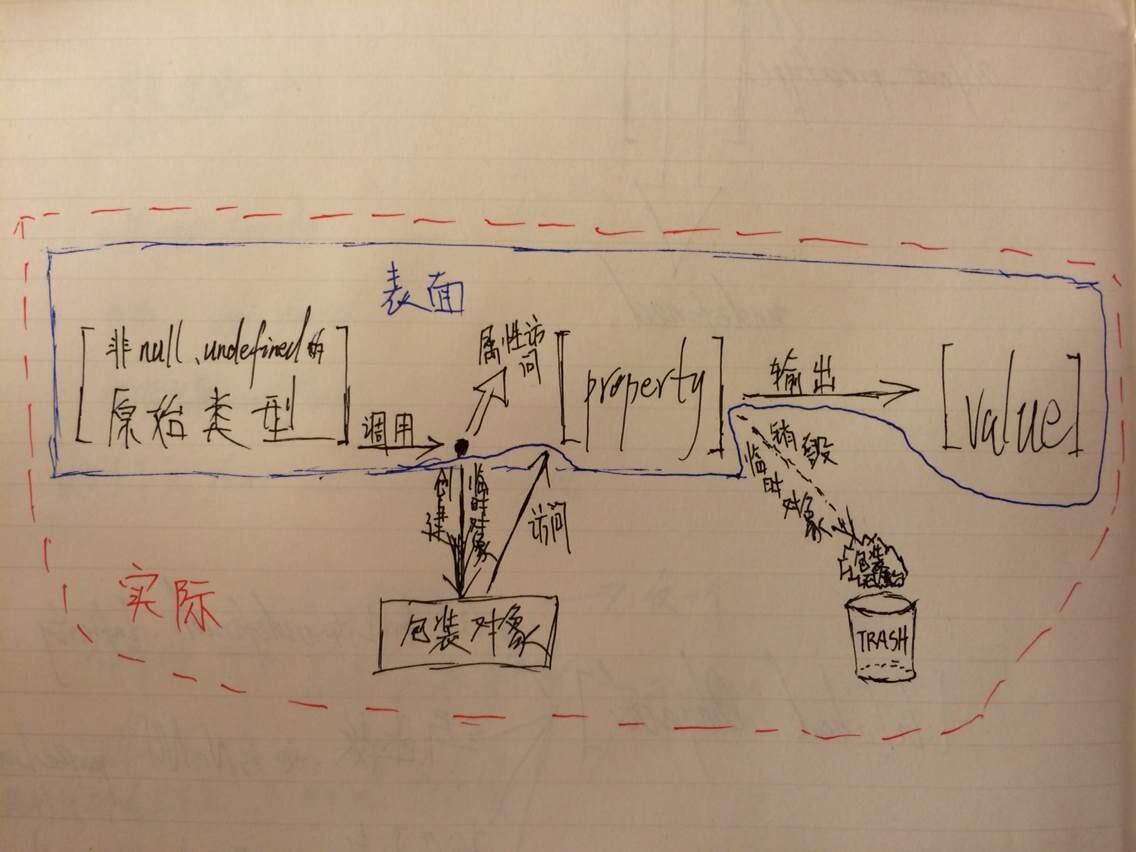 表面
非null、undefined的
原始类型
调用
属性访问
property
输出
value
创建
临时对象
访问
销毁
临时对象
包装对象
包装
TRASH
实际